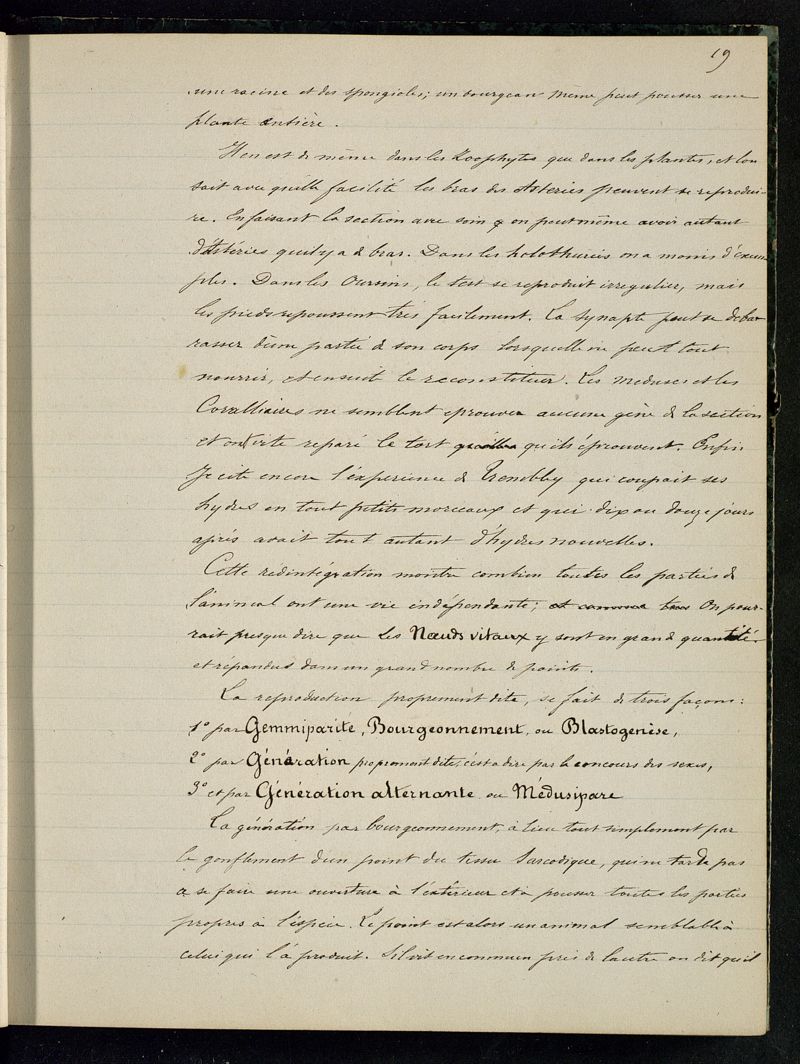 19
une racine et des spongioles; un bourgeon même peut pousser une
plante entière.
Il en est de même dans les Zoophytes que dans les plantes, et l'on
sait avec quelle facilité les bras des Asteries peuvent se reprodui-
re. En faisant la section avec soin on peut même avoir autant
d'Astéries qu'il y a de bras. Dans les holothuries on a moins d'exem
ples. Dans les Oursins, le test se reproduit irregulier, mais
les pieds repoussent très facilement. La Synapte peut se débar
rasser d'une partie de son corps lorsqu'elle ne peut tout
nourrir, et ensuite le reconstituer. Les meduses et les
Coralliaires ne semblent eprouver aucune gêne de la section
et ont vite reparé le tort qu'ils éprouvent. Enfin
je cite encore l'experience de Trembley qui coupait ses
hydres en tout petits morceaux et qui dix ou douze jours
après avait tout autant d'hydres nouvelles.
Cette redintégration montre combien toutes les parties de
l'animal ont une vie indépendante; et comme On pour-
rait presque dire que les Nœuds vitaux y sont en grande quantité
et répandus dans un grand nombre de points.
La reproduction proprement dite, se fait de trois façons:
1º par Gemmiparité, Bourgeonnement, ou Blastogenèse,
2º par Génération proprement dite, c'est à dire par le concours des sexes,
3º et par Génération alternante ou Médusipare
La génération par bourgeonnement, à lieu tout simplement par
le gonflement d'un point du tissu Sarcodique, qui ne tarde pas
a se faire une ouverture à l'extérieur et a pousser toutes les parties
propres à l'espèce. Le point est alors un animal semblable à
celui qui l'à produit. S'il vit en commun près de l'autre on dit qu'il